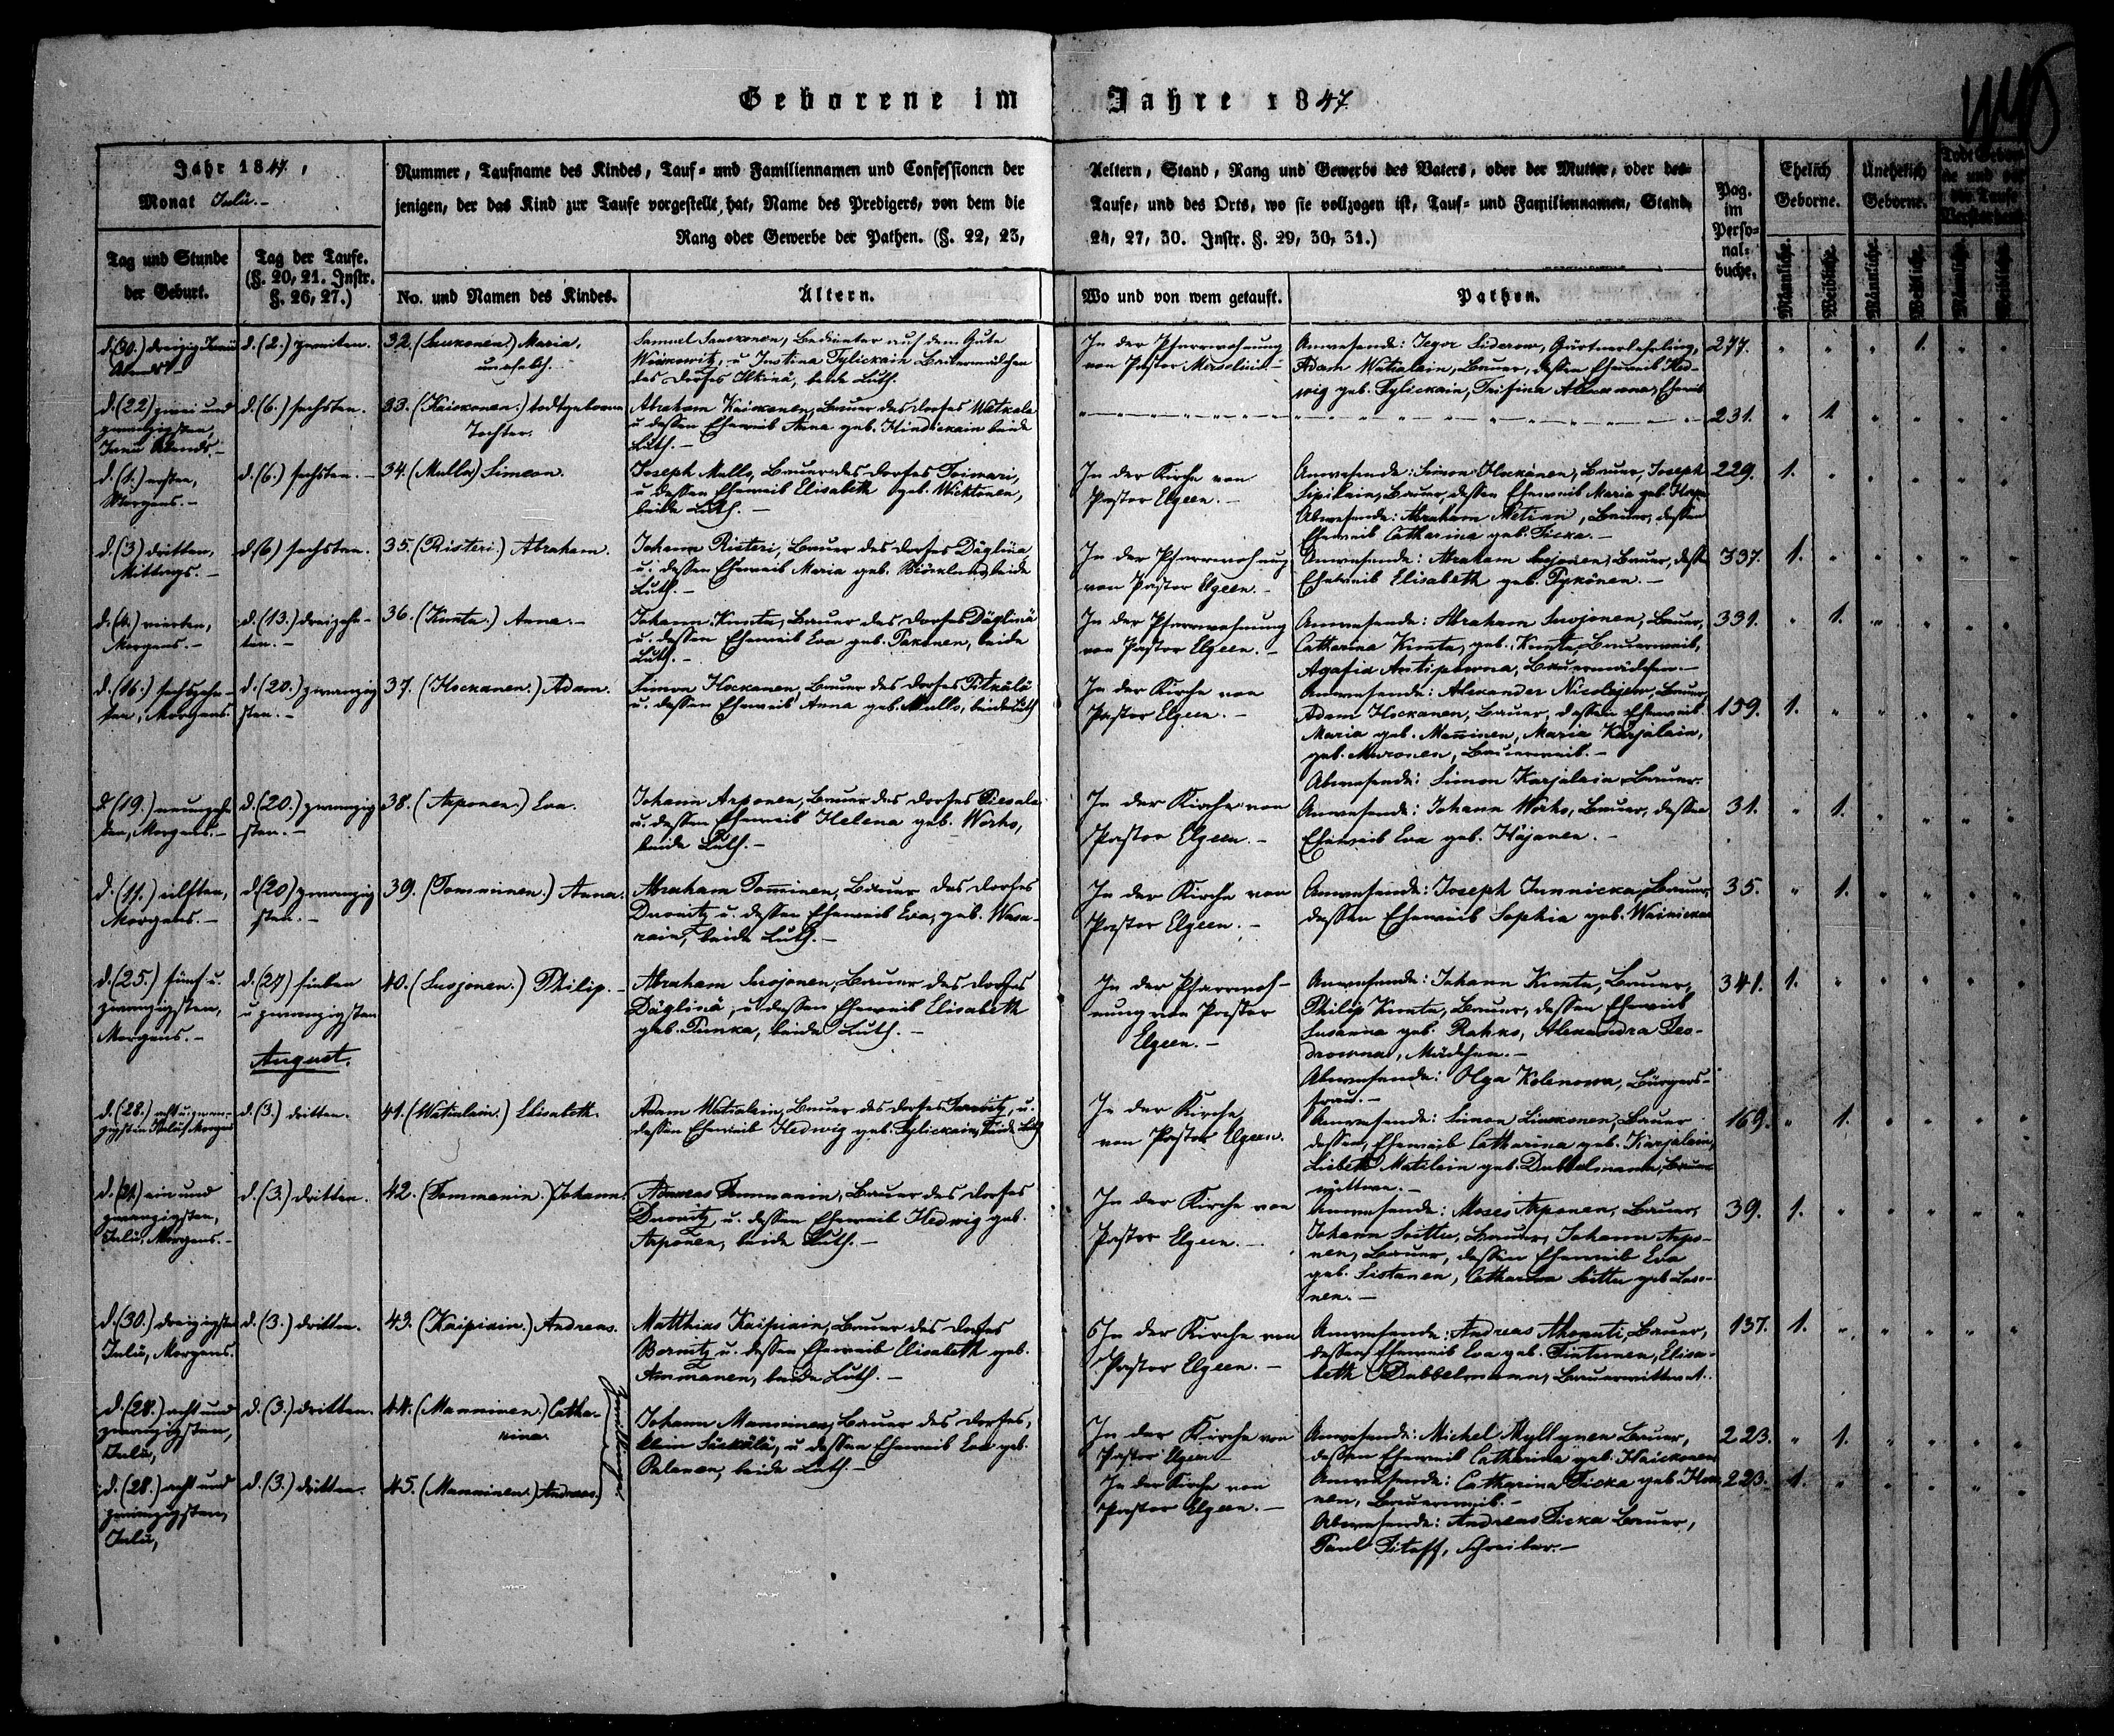 Geborene im Jahre 1847.
Jahr 1847,
Monat Julii.-
Nummer, Taufname des Kindes, Tauf- und Familiennamen und Confessionen der Aeltern, Stand, Rang und Gewerbe des Vaters, oder der Mutter, oder des-
jenigen, der das Kind zur Taufe vorgestellt hat, Name des Predigers, von dem die Taufe, und des Orts, wo sie vollzogen ist, Tauf- und Familiennamen, Stand,
Rang oder Gewerbe der Pathen. (§. 22, 23, 24, 27, 30. Instr. §. 29, 30, 31.)
Pag.
im
Perso-
nal-
buche.
Ehelich
Geborne.
Unehelich
Geborne.
Tag und Stunde
der Geburt.
Tag der Taufe.
(§. 20, 21. Instr.
§. 26, 27.)
No. und Namen des Kindes.
Ältern.
Wo und von wem getauft.
Pathen.
Männliche.
Weibliche.
Männliche.
Weibliche.
Männliche.
Weibliche.
d. (30.) dreizig Junii
Abends
d. (2.) zweiten.
32. (Saukonen.) Maria,
unehelich.
Samuel Saukonen, Bedienter auf dem Gute
u. Justina Tylickain Bauermädchen
des Dorfes Ilkina, beide Luth.
In der Pfarrwohnung
von Pastor
Anwesende: Jegor Sidorow, Gärtnerlehrling,
Adam Watialain, Bauer, dessen Eheweib Hed-
wig geb. Tylickain, Eheweib
277. " " " 1. " "
d. (22) zwei und
zwanzigsten,
Junii Abends.-
d. (6.) sechsten.
33. (Kaickonen.) todtgeborne
Tochter.
Abraham Kaickonen, Bauer des Dorfes
u. dessen Eheweib Anna geb. Hindickain beide
Luth.-
231. " 1. " " " "
d. (1.) ersten,
Morgens.-
d. (6.) sechsten.-
34. (Mullo) Simeon.
Joseph Mullo, Bauer des Dorfes
u. dessen Eheweib Elisabeth geb. Wicktonen,
beide Luth.-
In der Kirche von
Pastor Elgeen.-
Anwesende: Simon Hockanen, Bauer, Joseph
Sipilain, Bauer, dessen Eheweib Maria geb.
Abwesende: Abraham Bauer, dessen
Eheweib Catharina geb. Ticka.-
229. 1. " " " " "
d. (3.) dritten,
Mittags.-
d. (6) sechsten.
35. (Risteri.) Abraham.
Johann Risteri, Bauer des Dorfes Däglinä
u. dessen Eheweib Maria geb. beide
Luth.-
In der Pfarrwohnung
von Pastor Elgeen.-
Anwesende: Abraham Susojonen, Bauer, dessen
Eheweib Elisabeth geb. Pykönen.-
337. 1. " " " " "
d. (4.) vierten,
Morgens.-
d. (13.) dreizehn-
ten.-
36. (Kunta.) Anna.-
Johann Kunta, Bauer des Dorfes Däglinä
u. dessen Eheweib Eva geb. Pakonen, beide
Luth.-
In der Pfarrwohnung
von Pastor Elgeen.-
Anwesende: Abraham Susojonen, Bauer,
Catharina Kunta, geb. Kunta, Bauerweib,
Agafia Antipowna, Bauermädchen.-
331. " 1. " " " "
d. (16.) sechszehn-
ten, Morgens
d. (20.) zwanzig-
sten.-
37. (Hockanen.) Adam.
Simon Hockanen, Bauer des Dorfes Pitkälä
u. dessen Eheweib Anna geb. Mullo, beide Luth
In der Kirche von
Pastor Elgeen.-
Anwesende: Alexander Nicolajew, Bauer,
Adam Hockanen, Bauer, dessen Eheweib
Maria geb. Menninen, Maria Karjalain,
geb. Muronen, Bauerweib.-
Abwesende: Simon Karjalain Bauer.
159. 1. " " " " "
d. (19.) neunzehn-
ten, Morgens.-
d. (20.) zwanzig-
sten.-
38. (Arponen.) Eva.
Johann Arponen, Bauer des Dorfes
u. dessen Eheweib Helena geb. Worko,
beide Luth.-
In der Kirche von
Pastor Elgeen.-
Anwesende: Johann Worko, Bauer, dessen
Eheweib Eva geb. Häjänen.-
31. " 1. " " " "
d. (11.) eilften,
Morgens.-
d. (20) zwanzig-
sten.-
39. (Tomminen.) Anna.
Abraham Tominen, Bauer des Dorfes
Duonitz u. dessen Eheweib Eva, geb. Wasa-
rain, beide Luth.-
In der Kirche von
Pastor Elgeen.-
Anwesende: Joseph Junnicka, Bauer,
dessen Eheweib Sophia geb.
35. " 1. " " " "
d. (25.) fünf u.
zwanzigsten,
Morgens.-
d. (27) sieben
u zwanzigsten
40. (Susojonen.) Philip.-
Abraham Susojonen, Bauer des Dorfes
Däglinä, u. dessen Eheweib Elisabeth
geb. Punka, beide Luth.-
In der Pfarrwoh-
nung von Pastor
Elgeen.-
Anwesende: Johann Kunta, Bauer,
Philip Kunta, Bauer, dessen Eheweib
Susanna geb. Rokko, Alexandra Feo-
drowna, Mädchen.-
Abwesende: Olga Kolenowa, Bürgers-
frau.-
341. 1. " " " " "
August.
d. (28.) acht u. zwan-
zigsten Julii Morgens
d. (3.) dritten.
41. (Watialain.) Elisabeth.
Adam Watialain, Bauer des Dorfes u.
dessen Eheweib Hedwig geb. Tylickain, beide Luth
In der Kirche
von Pastor Elgeen.
Anwesende: Simon Liuckonen, Bauer
dessen Eheweib Catharina geb. Karjalain,
Lisbeth Matilain geb. Dubbelmann, Bauer-
wittwe.-
169. " 1. " " " "
d. (21.) ein und
zwanzigsten,
Julii, Morgens.-
d. (3.) dritten.
42. (Tommanin.) Johann.
Andreas Tommanin, Bauer des Dorfes
Duonitz u. dessen Eheweib Hedwig geb.
Arponen, beide Luth.-
In der Kirche von
Pastor Elgeen.-
Anwesende: Moses Arponen, Bauer,
Johann Soittu, Bauer, Johann Arpo-
nen, Bauer, dessen Eheweib Eva
geb. Sistanen, Catharina Soittu geb.
nen.-
39. 1. " " " " "
d. (30.) dreizigsten
Julii, Morgens.
d. (3.) dritten.
43. (Kaipiain.) Andreas.
Matthias Kaipiain, Bauer des Dorfes
Bornitz u. dessen Eheweib Elisabeth geb.
Ammanen, beide Luth.-
In der Kirche von
Pastor Elgeen.-
Anwesende: Andreas Ahonuti, Bauer,
dessen Eheweib Eva geb. Tintunen, Elisa-
beth Dubbelmann, Bauerwittwe.
137. 1. " " " " "
d. (28.) acht und
zwanzigsten,
Julii,
d. (3.) dritten.
44. (Manninen.) Catha-
rina.
Zwillinge.
Johann Manninen, Bauer des Dorfes,
klein u dessen Eheweib Eva geb.
Palonen, beide Luth.-
In der Kirche von
Pastor Elgeen
Anwesende: Michel Myllynen Bauer,
dessen Eheweib Catharina geb. Haickonen
223. " 1. " " " "
d. (28.) acht und
zwanzigsten,
Julii,
d. (3.) dritten.
45. (Manninen.) Andreas.
In der Kirche von
Pastor Elgeen.-
Anwesende: Catharina Ticka geb.
nen, Bauerweib.-
Abwesende: Andreas Ticka Bauer,
Paul Titoff, Schreiber.-
223. 1. " " " " "